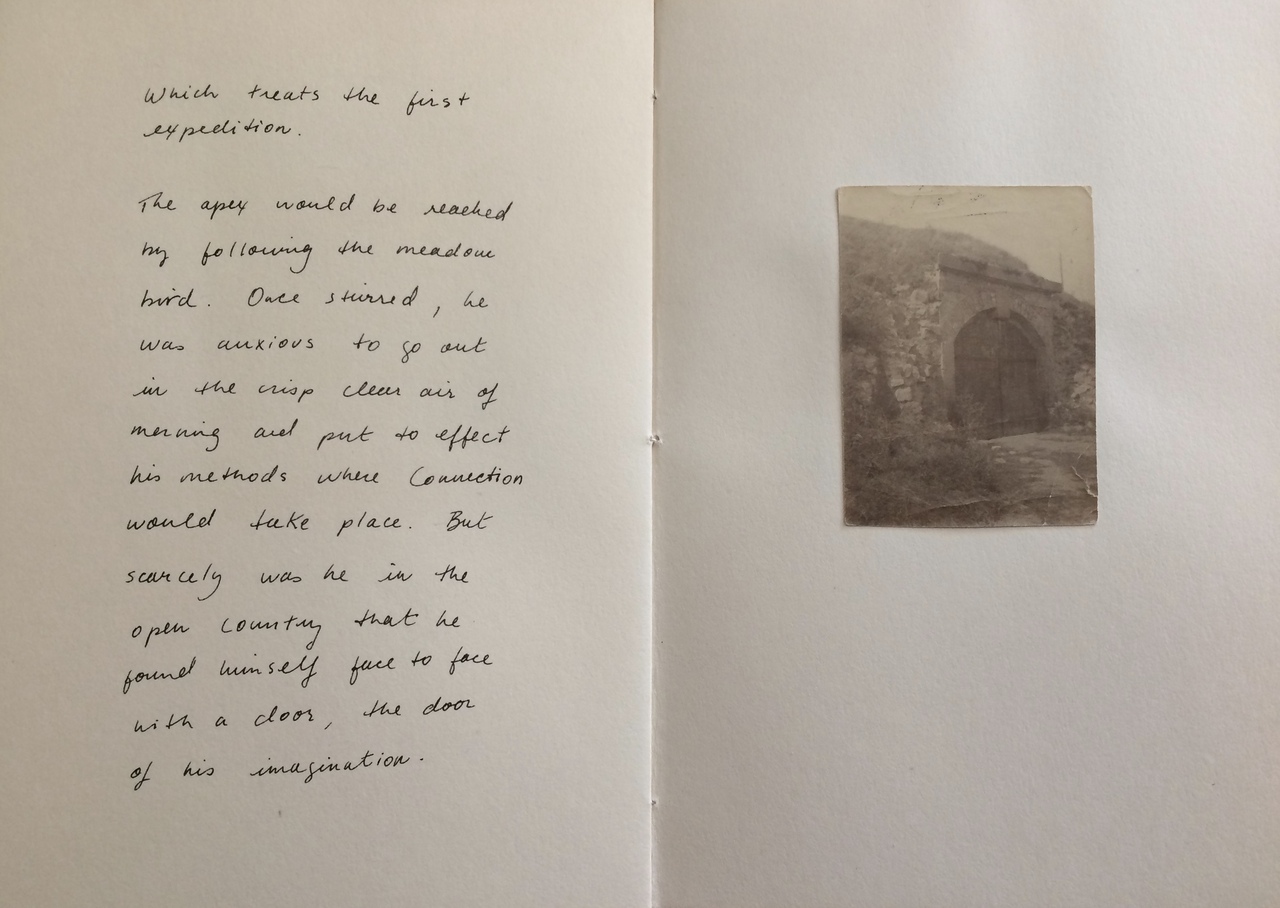 Which treats the first
expedition.
The apex would be reached
by following the meadow
bird. Once stirred, he
was anxious to go out
in the crisp clear air of
morning and put to effect
his methods where Connection
would take place. But
scarcely was he in the
open country that he
found himself face to face
with a door, the door
of his imagination.